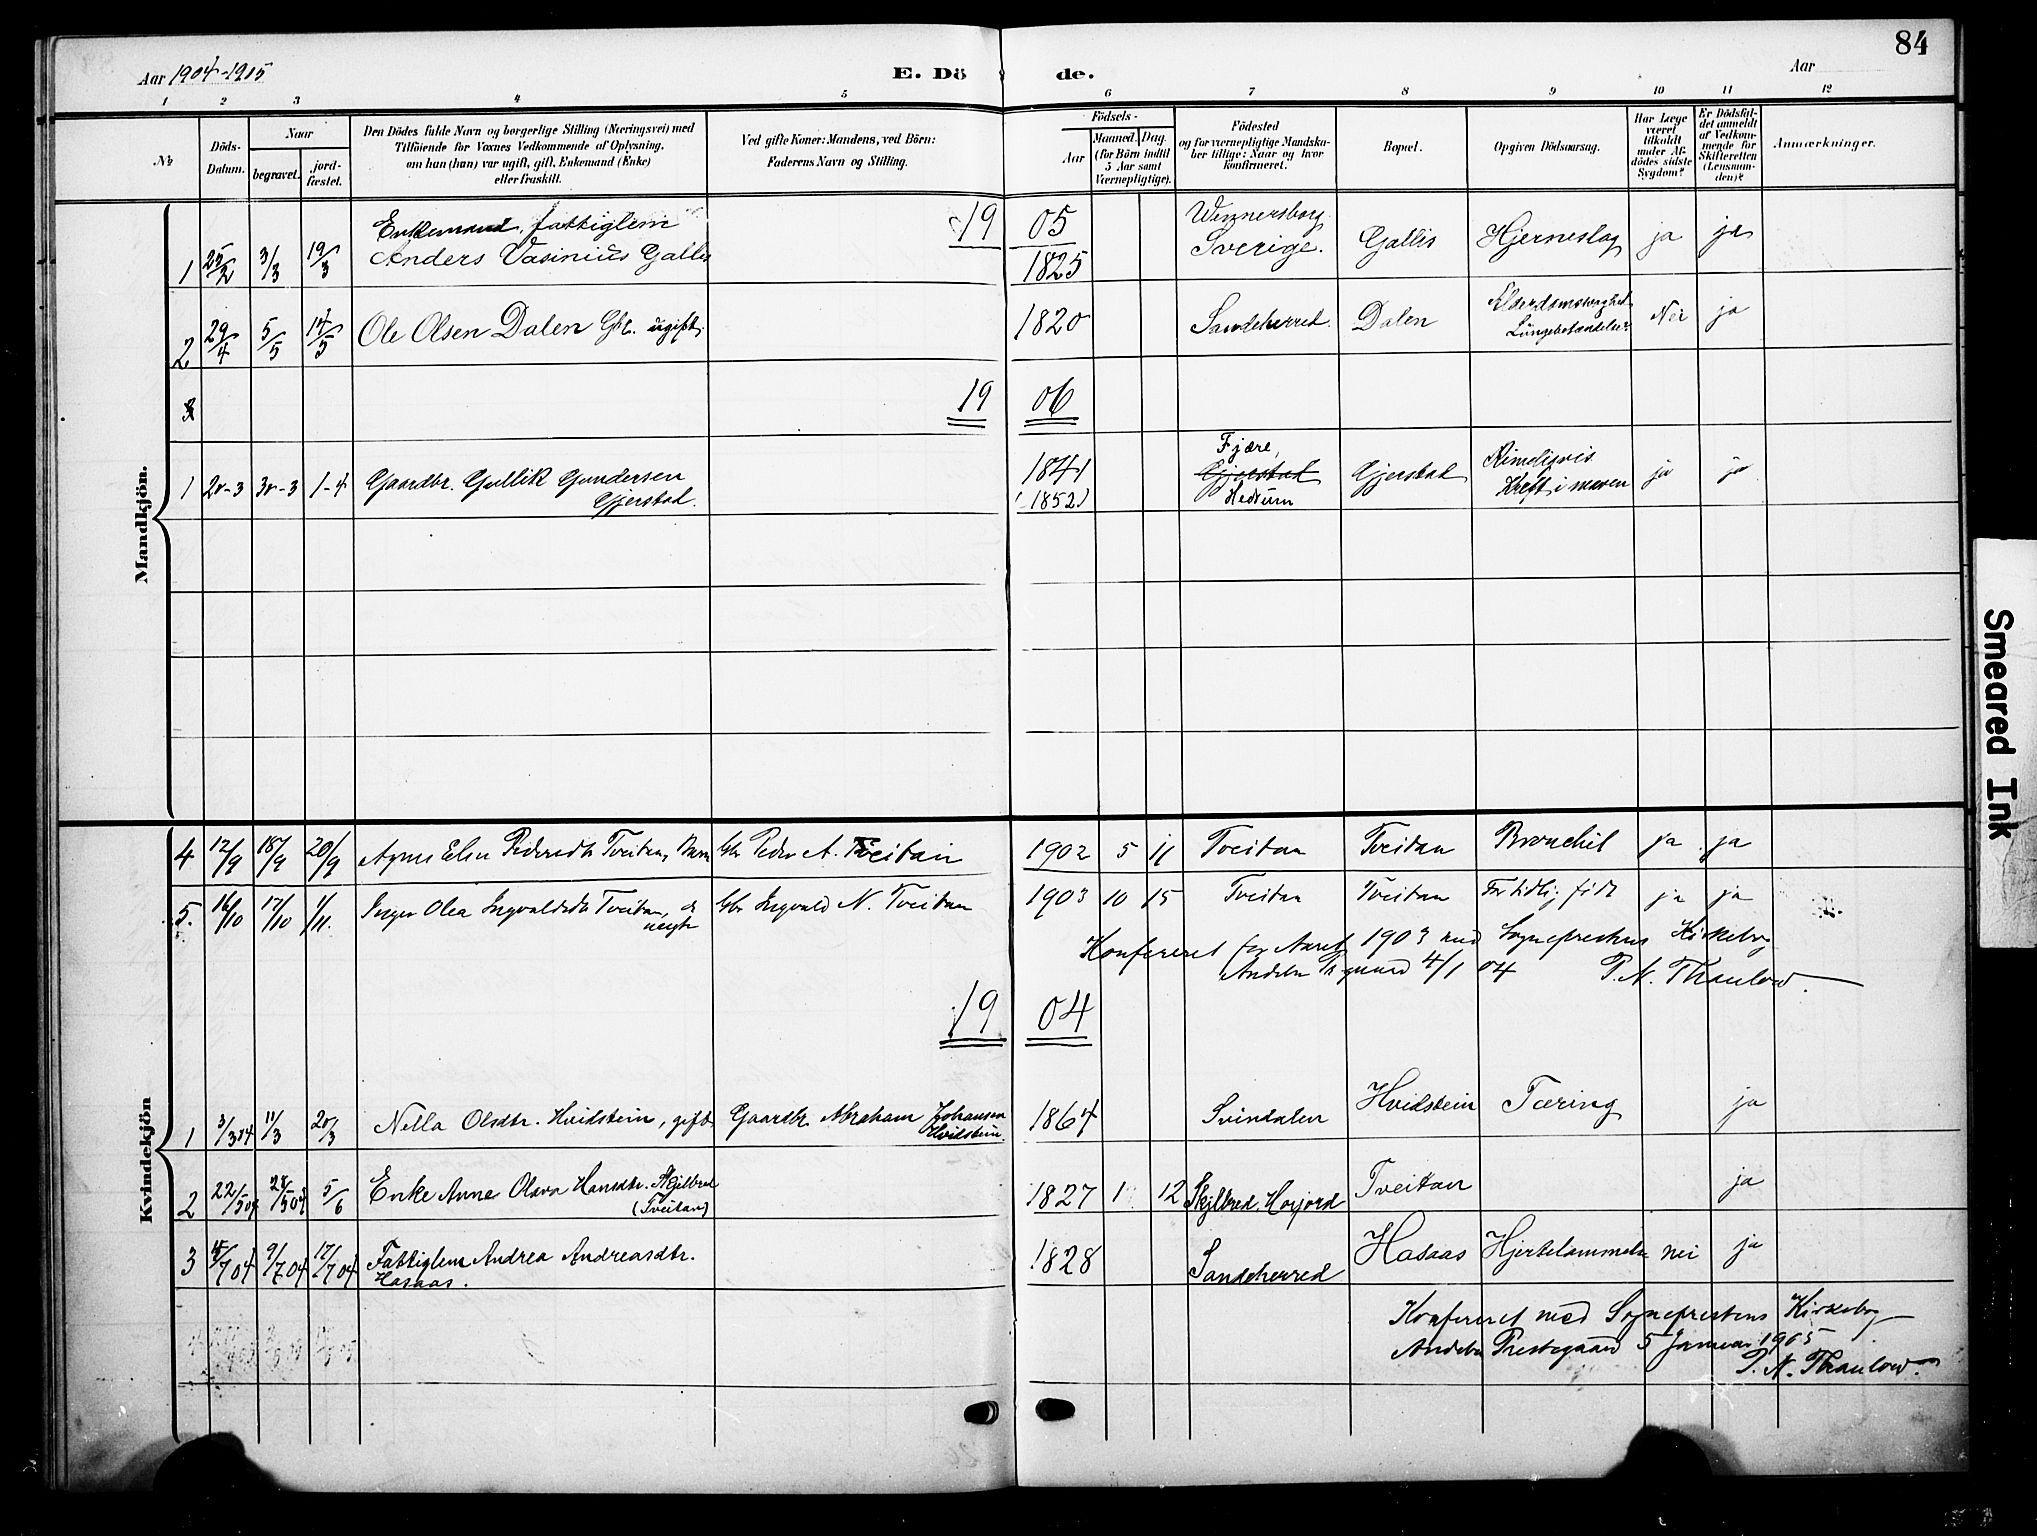 84
Aar 1904-1905
E. Dö de.
Aar
1 2 3 4 5 6 7 8 9 10 11 12
No
Döds-
Datum.
Naar
begravet.
jord-
fæstet.
Den Dödes fulde Navn og borgerlige Stilling (Næringsvei) med
Tilföiende for Voxnes Vedkommende af Oplysning,
om han (hun) var ugift, gift, Enkemand (Enke)
eller fraskilt.
Ved gifte Koner: Mandens, ved Börn:
Faderens Navn og Stilling.
Födsels-
Aar
Maaned. Dag.
(for Börn indtil
5 Aar samt
Værnepligtige).
Födested
og for værnepligtige Mandska-
ber tillige: Naar og hvor
konfirmeret.
Bopæl.
Opgiven Dödsaarsag.
Har Læge
været
tilkaldt
under Af-
dödes sidste
Sygdom?
Er Dödsfal-
det anmeldt
af Vedkom-
mende for
Skifteretten
(Lensman-
den)?
Anmærkninger.
Mandkjön.
19 05
1 25/2 3/3 19/3 Enkemand, fattiglem
Anders Vasinius Gallis 1825 Wennersborg
Sverige. Gallis Hjerneslag ja ja
2 29/4 5/5 14/5 Ole Olsen Dalen Gbr. ugift. 1820 Sandeherred. Dalen Alderdomssvaghed
Lungebetændelse Nei ja
3
19 06
1 20-3 30-3 1-4 Gaardbr. Gullik Gundersen
Gjerstad. 1841
(1852) Fjære,
Gjerstad
Hedrum Gjerstad Rimeligvis
Kræft i maven ja ja
Kvindekjön
4 12/9 18/9 20/9 Agnes Elise Pedersdtr Tveitan, Barn Gbr Peder A. Tveitan 1902 5 11 Tveitan Tveitan Bronchit ja ja
5. 16/10 17/10 1/11. Inger Olea Ingvaldsdtr Tveitan, Gbr Ingvald N. Tveitan 1903 10 15 Tveitan Tveitan For tidlig født ja ja
Konfereret for Aaret 1903 med Sogneprestens Kirkebog
Andebu 4/1 04 P. N. Thaulow.
19 04
1 3/3 04 11/3 20/3 Nella Olsdtr. Hvidstein, gift Gaardbr. Abraham Johansen
Hvidstein. 1864 Svindalen Hvidstein Tæring ja
2 22/5 04 28/5 04 5/6 Enke Anne Olava Hansdtr. Skjelbred
(Tveitan) 1827 1 12 Skjelbred. Tveitan ja
3 7 04 9/7 04 17/7 04 Fattiglem Andrea Andreasdtr.
Hasaas. 1828 Sandeherred Hasaas Hjertelammelse nei ja
Konfereret med Sogneprestens Kirkebog
Andebu Prestegaard 5 Januar 1905
P. N. Thaulow.
Smeared Ink